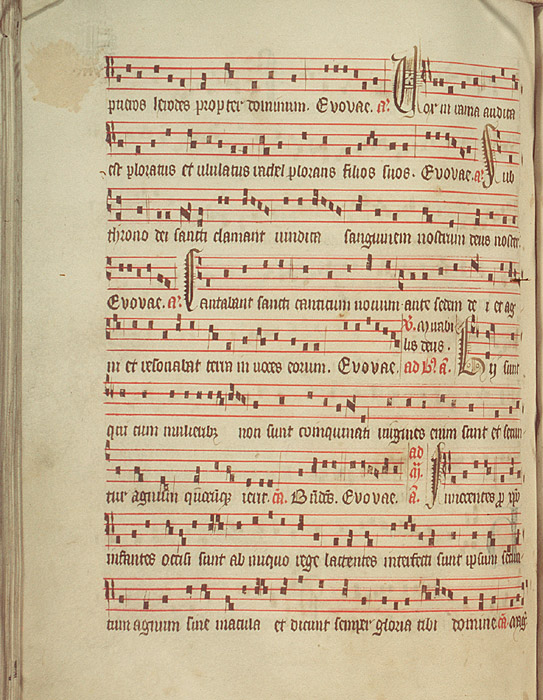 pueros leuores propter dominum. Evovae. a. Vox in rama audita
est ploratus et ululatus rachel plorans filios suos. Evovae. a. Sub
throno dei sancti clamant vindica sanguinem nostrum deus noster.
Evovae. a. Cantabant sancti canticum novum ante sedem de i et ag
ni et resonabat terra in voces eorum. Evovae. ad a. Hij sunt
qui cum mulieribz non sunt coinquinati virgines enim sunt et secun
tur agnum ierit. Evovae. a. Innocentes p
infantes occisi sunt ab iniquo rege lactentes interfecti sunt ipsum secuti
sunt agnum sine macula et dicunt semper gloria tibi domine